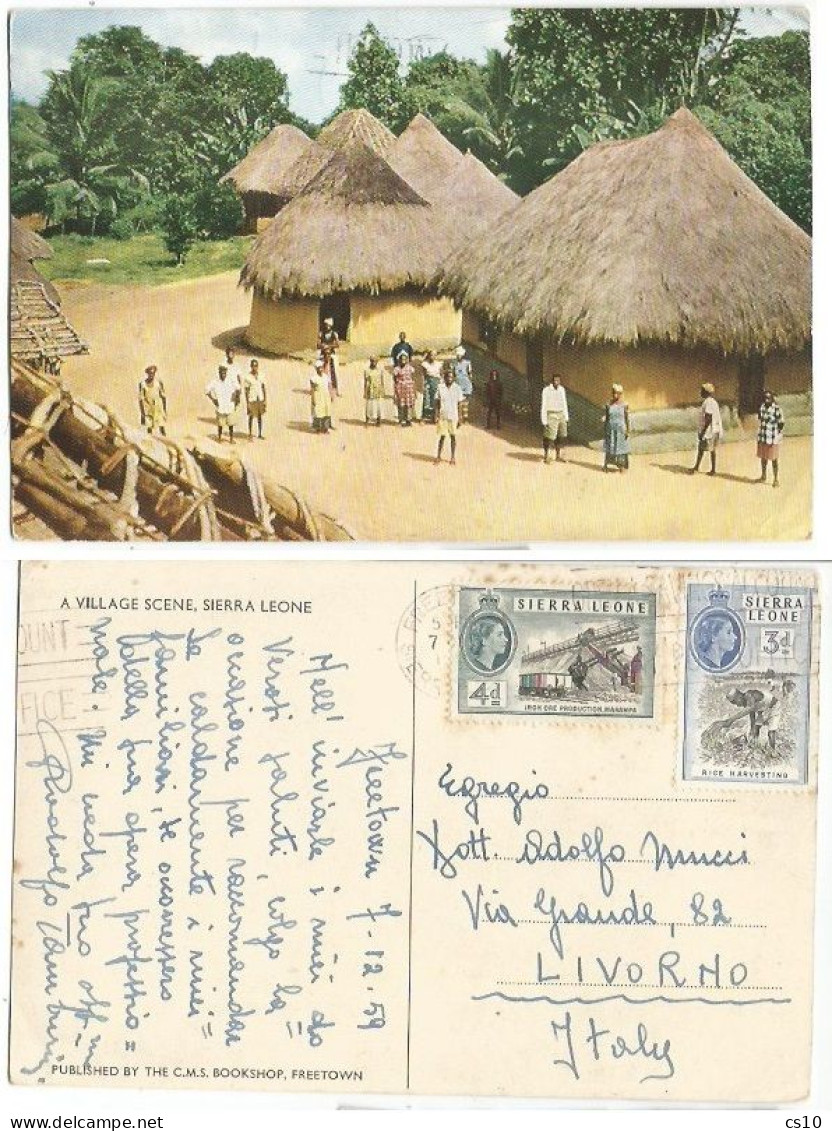 A VILLAGE SCENE, SIERRA LEONE
Freetown 7-12.59
Nell' inviarle i miei do=
veroti saluti, colgo la=
occasione per raccomandar
Le caldamente i miei=
familiari, se occorressero
della sua opera professio=
nale. Mi creda suo aff.mo
Rodolfo
PUBLISHED BY THE C.M.S. BOOKSHOP, FREETOWN
SIERRA LEONE
4d
IRON ORE PRODUCTION, MARAMPA
SIERRA
LEONE
3d
RICE HARVESTING
OUNT
FICE
Egregio
Dott. Adolfo Mucci
Via Grande, 82
LIVORNO
Italy
cs10